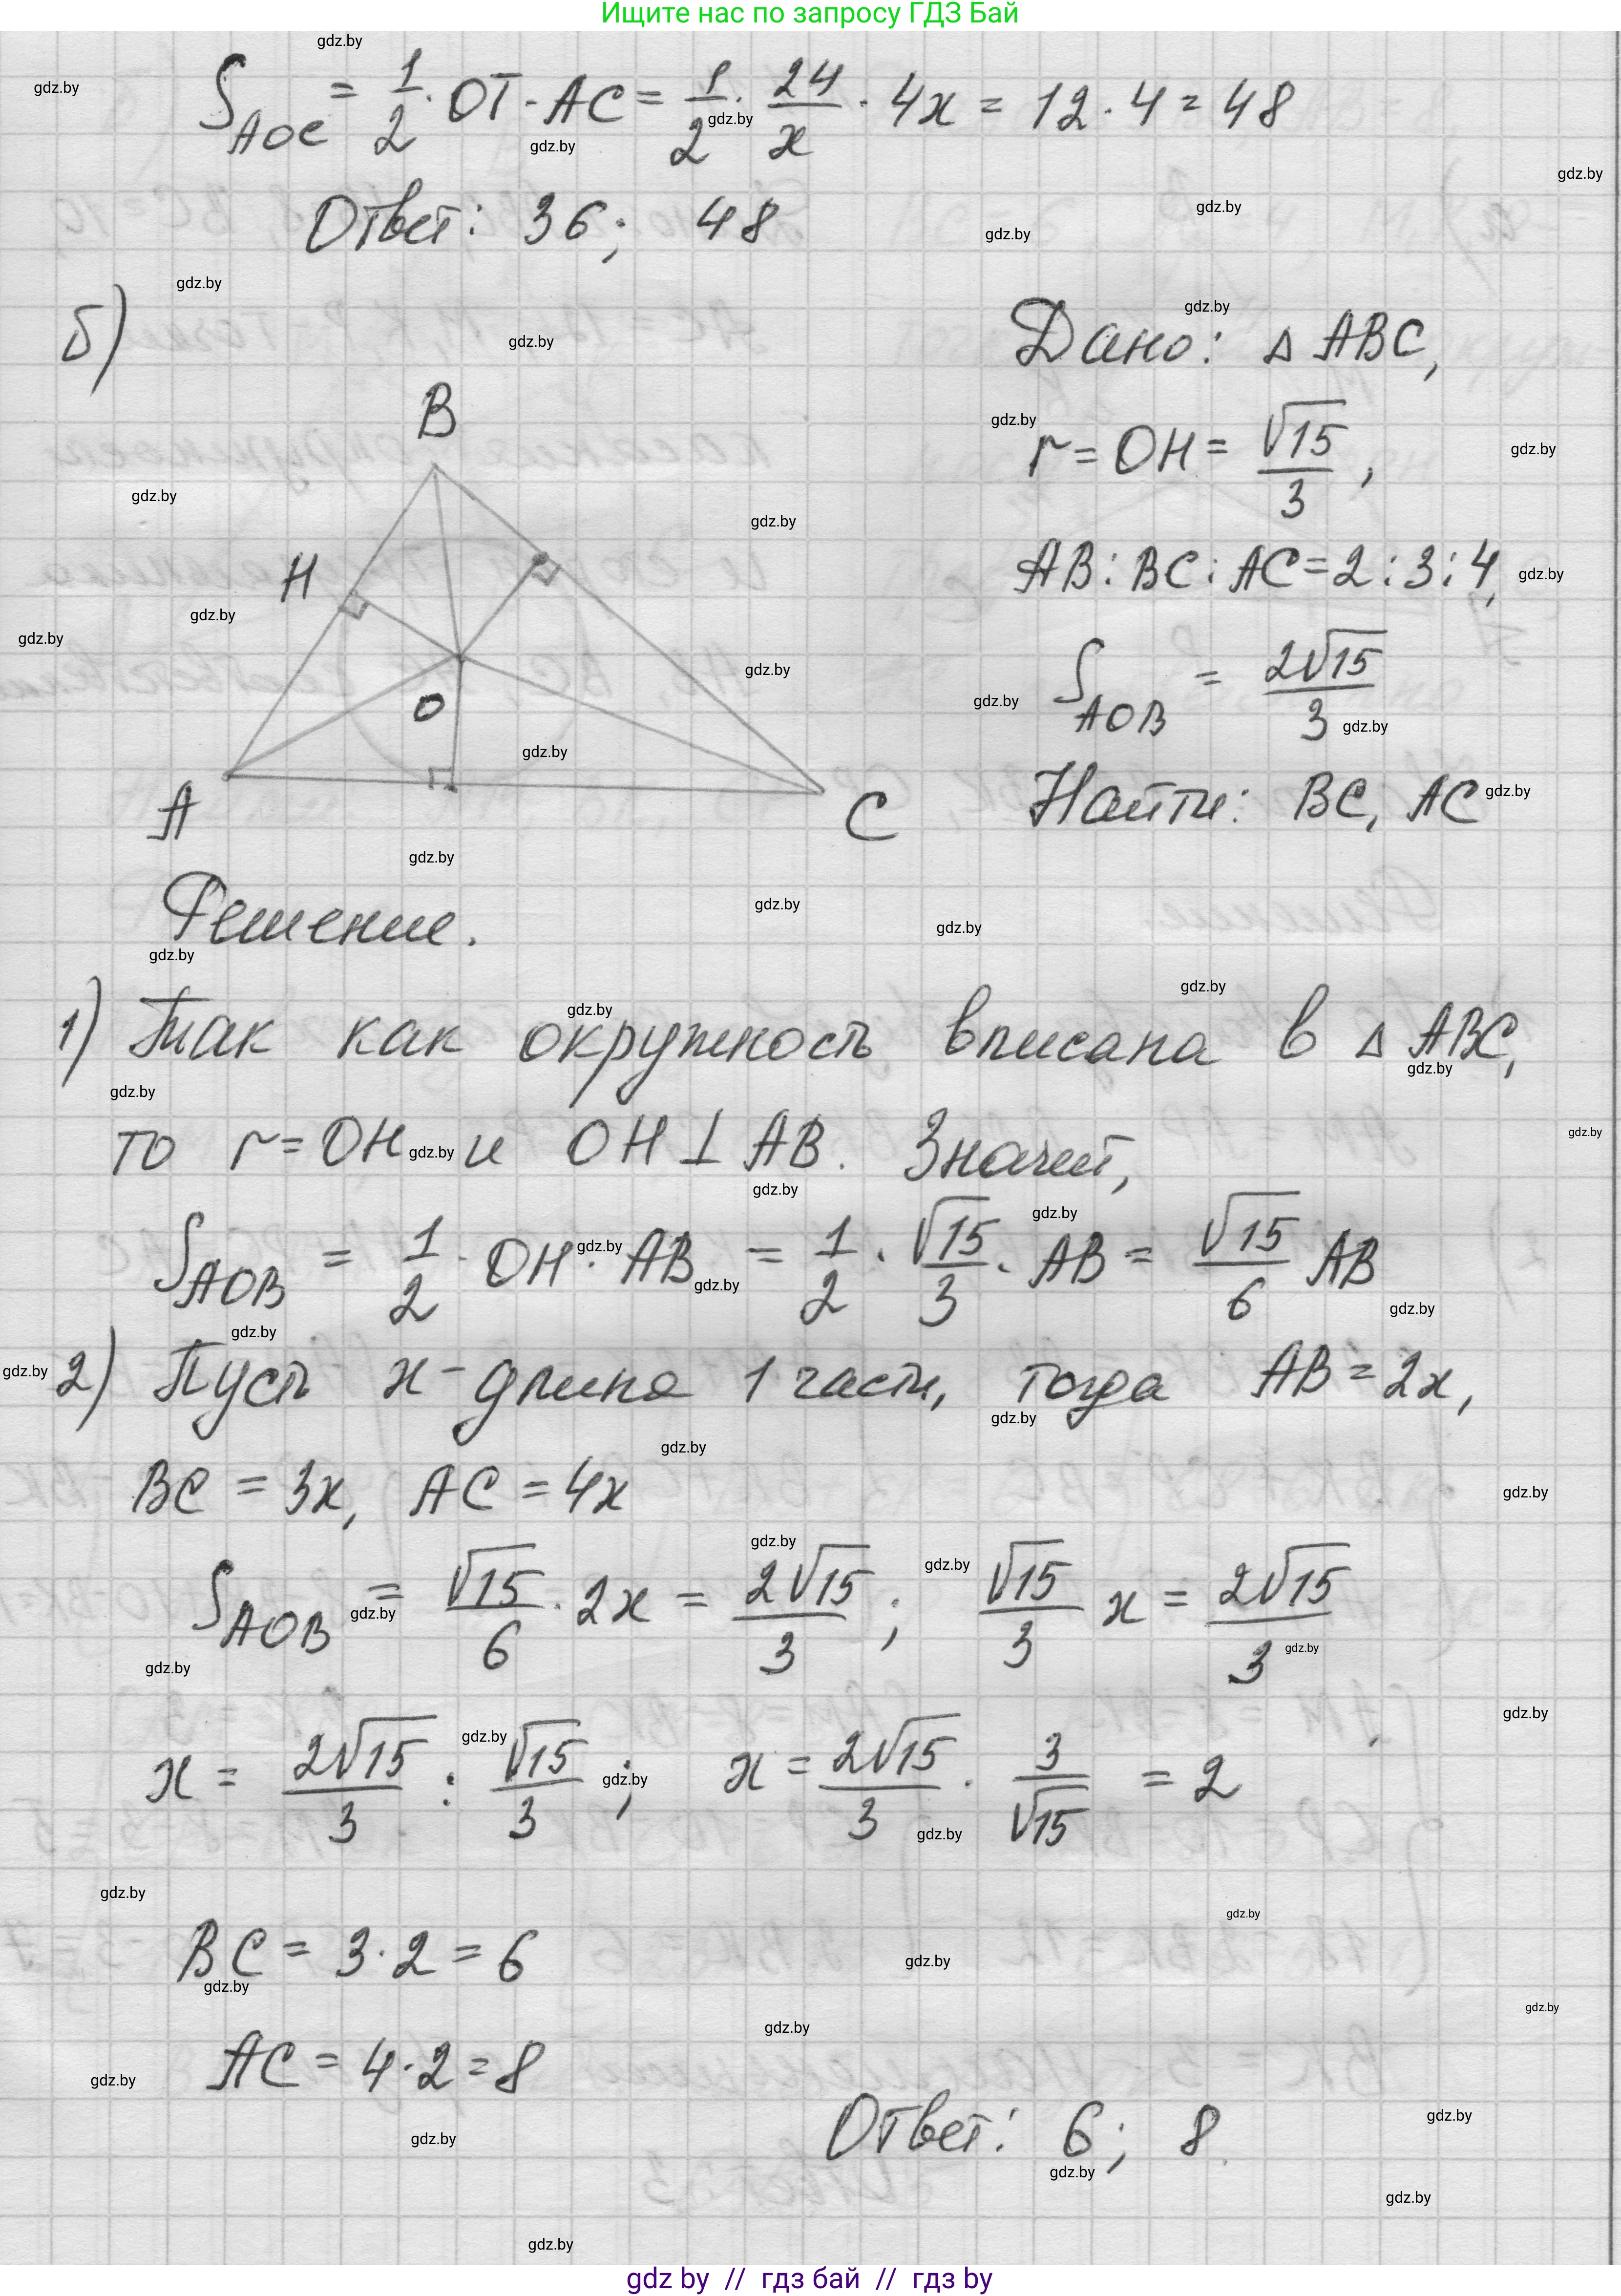 Ищите нас по запросу ГДЗ Бай
S_AOC = 1/2 · OT · AC = 1/2 · 24/x · 4x = 12 · 4 = 48
Ответ: 36; 48
б)
Дано: △ ABC,
r = OH = √15/3,
AB : BC : AC = 2 : 3 : 4,
S_AOB = 2√15/3
Найти: BC, AC
B
H
O
A
C
Решение.
1) Так как окружность вписана в △ ABC,
то r = OH и OH ⊥ AB. Значит,
S_AOB = 1/2 · OH · AB = 1/2 · √15/3 · AB = √15/6 AB
2) Пусть x - длина 1 части, тогда AB = 2x,
BC = 3x, AC = 4x
S_AOB = √15/6 · 2x = 2√15/3; √15/3 x = 2√15/3
x = 2√15/3 : √15/3; x = 2√15/3 · 3/√15 = 2
BC = 3 · 2 = 6
AC = 4 · 2 = 8
Ответ: 6; 8.
gdz by // гдз бай // гдз by